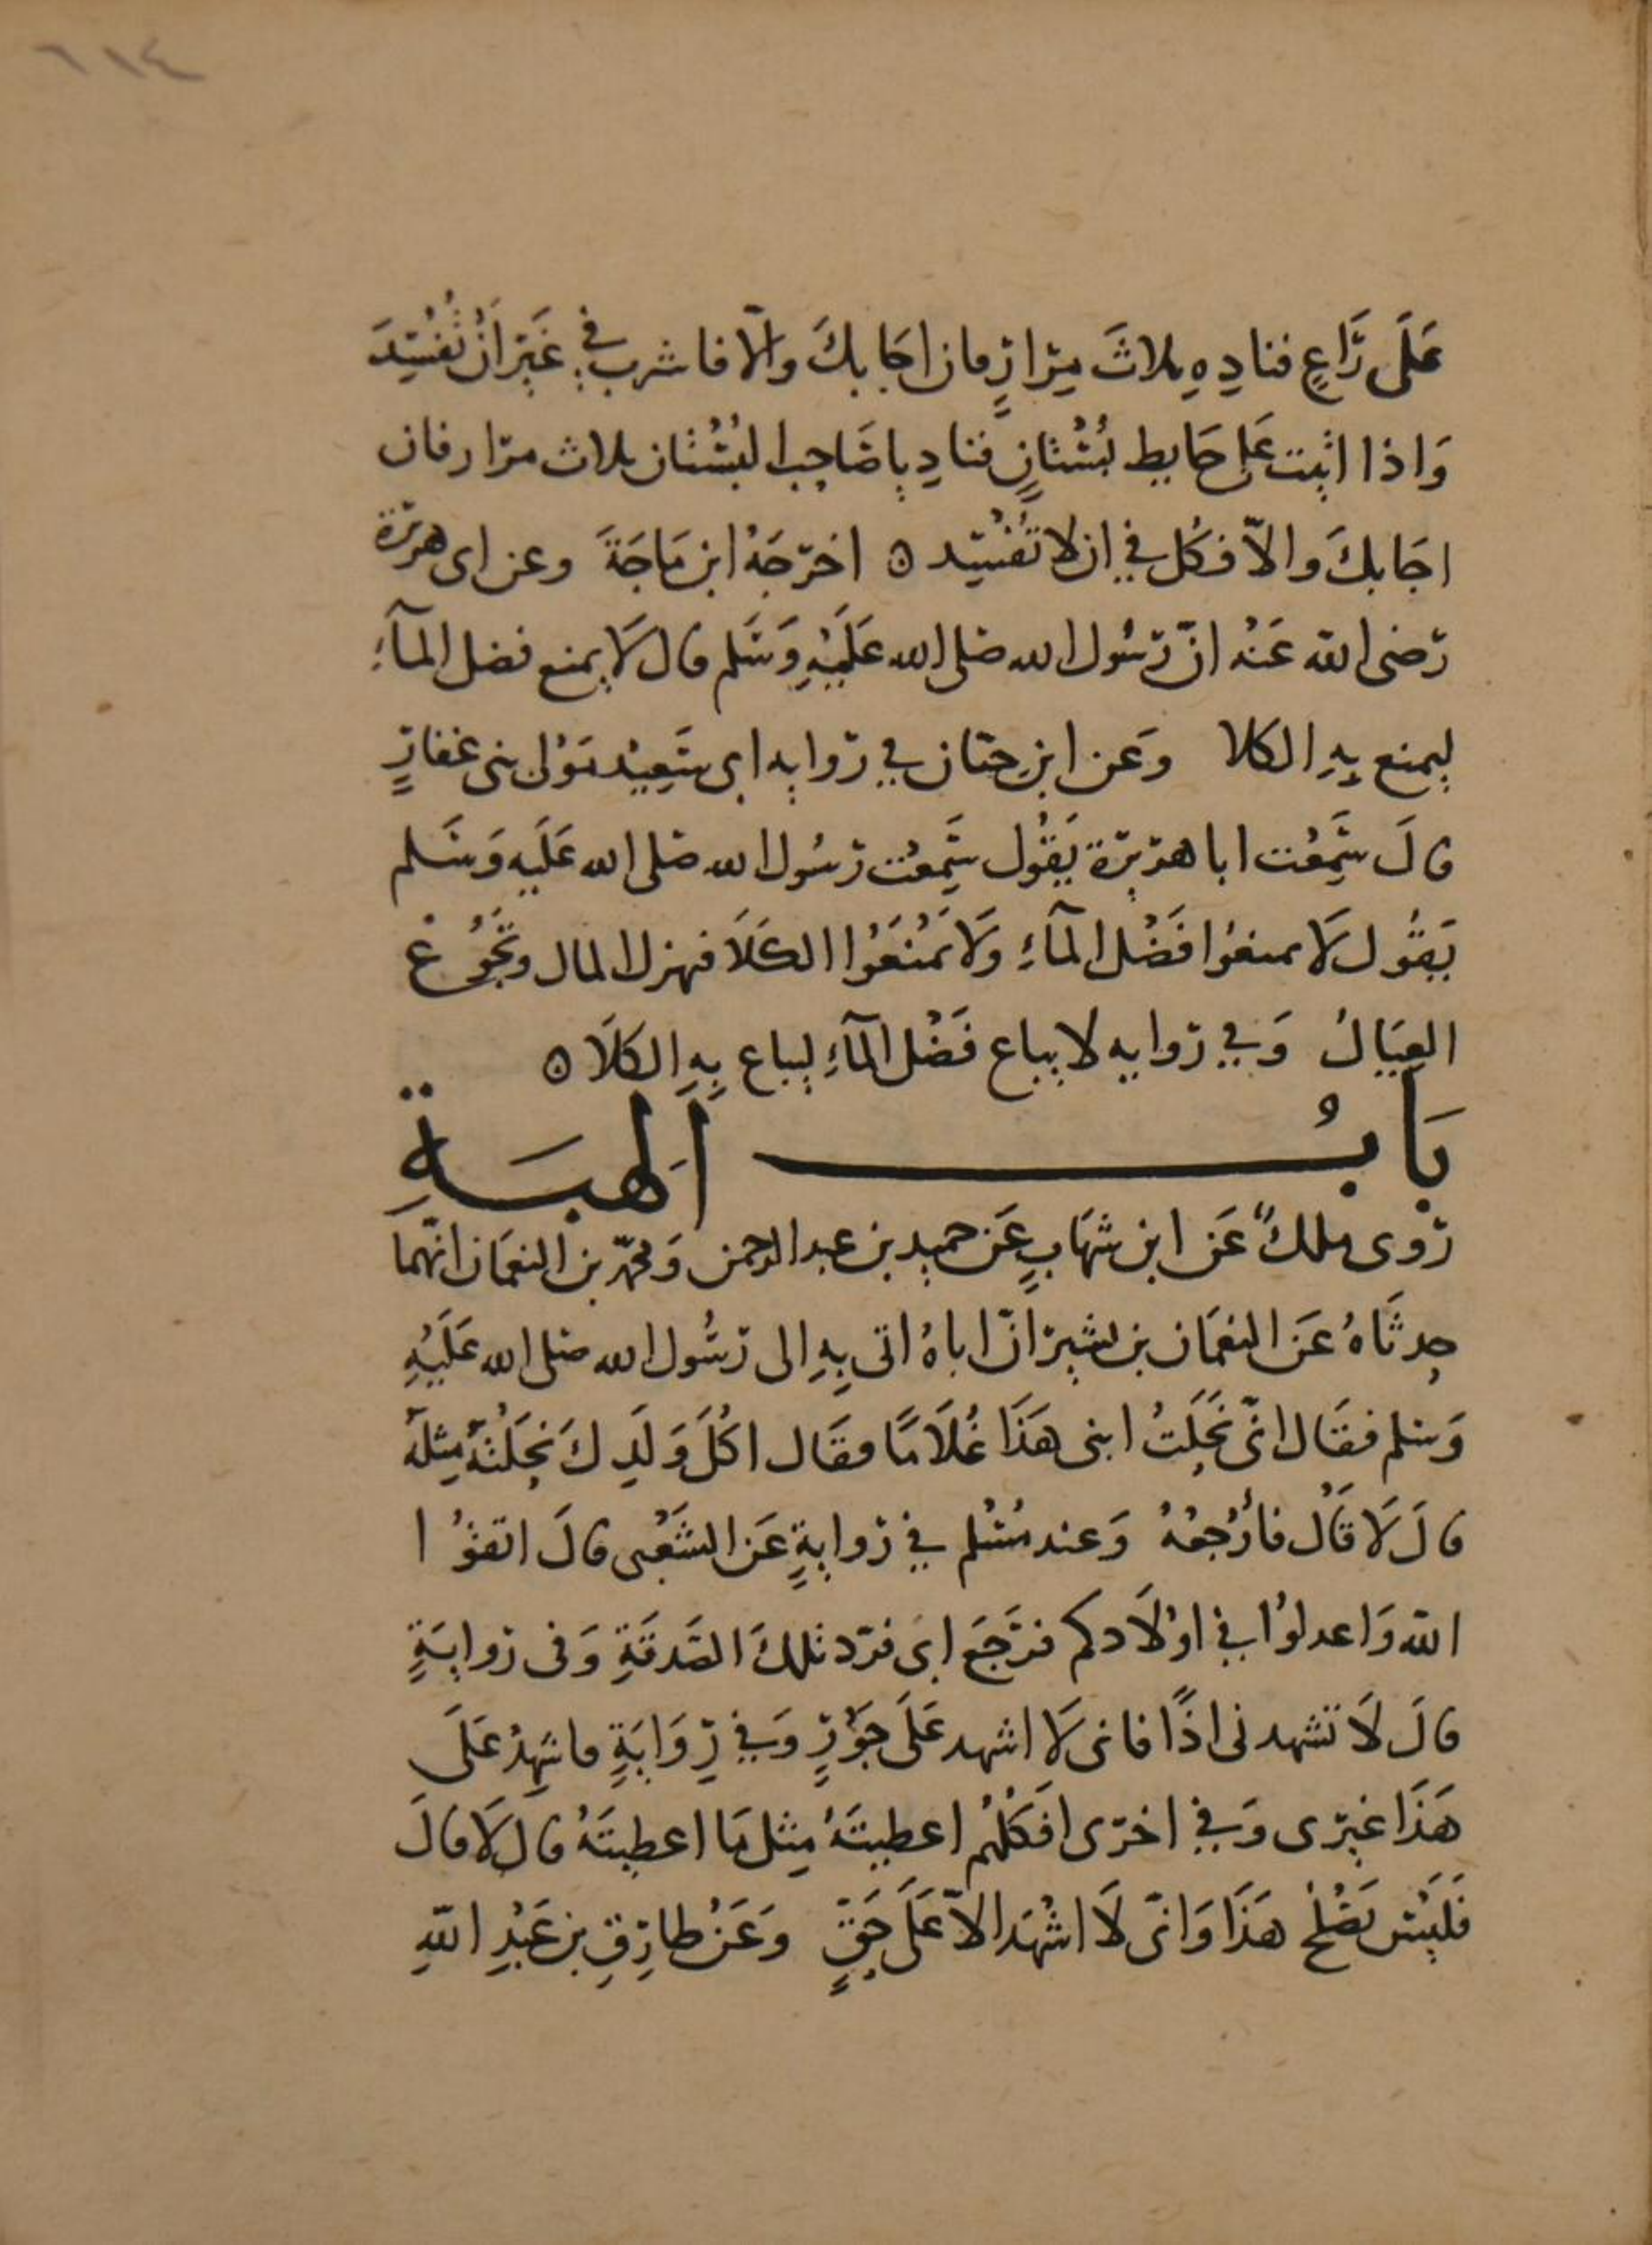 ٦١٤
عَلَى رَاعٍ فنادِهِ ثلاثَ مِرارٍ فان اجَابكَ والّا فاشرب في غَيْرِ اَنْ تُفْسِدَ
وَاذا اتيت عَلى حَايط بُسْتانٍ فنادِ ياصَاحِب البُسْتان ثلاث مرّار فان
اجَابكَ والاّ فكُل في ان لا تُفْسِد ه اخرَجَهُ ابن مَاجَةَ وعن ابى هريرة
رَضى اللّه عَنْه انّ رَسُول الله صَلى الله عَلَيْهِ وَسَلم قال لَا يمنع فضل المآءِ
ليمنع بِهِ الكلا وَعَن ابنِ حبّان في رَوايه ابى سَعِيْد مَوْلى بنى غفارٍ
قالَ سَمِعْت ابا هرَيرَة يَقُول سَمِعْت رَسُول الله صَلى الله عَلَيه وَسَلم
يَقُول لَا تمنعُوا فَضْل المآءِ وَلَا تمْنَعُوا الكَلَا فيهزل المال وتَجُوْعْ
العِيَالُ وَفي رَوايه لا يباع فَضْل المآءِ ليباع بِهِ الكَلَا ه
بَابُ الهِبَةِ
رَوى ملكٌ عَن ابن شهَابٍ عَن حميد بن عبد الرحمن وَمحمّد بن النعمَان انّهما
حدثَاهُ عَن النعمَان بن بشير انّ اباهُ اتى بِهِ الى رَسُول الله صَلى الله عَلَيْهِ
وَسَلم فقَال انّى نَحَلتُ ابنى هَذَا غُلَامًا فقَال اكُلَّ وَلَدِكَ نَحَلْتَهُ مِثلَهُ
قالَ لَا قَال فأرْجعْهُ وَعند مُسْلم في رَوايةٍ عَن الشَعْبى قالَ اتقوُا
اللّه وَاعدلوُا في اوْلَادكم فرَجَعَ ابى فرَد تلكَ الصَدقَةِ وَفى رَوايَةٍ
قالَ لَا تشهدنى اذًا فانى لَا اشهد عَلَى جَوْرٍ وَفي رِوَايَةٍ فاشهِدْ عَلَى
هَذَا غيرَى وَفي اخرَى افَكُلّهُمْ اعطيتَهُ مِثل مَا اعطيتَهُ قال لَا قالَ
فَلَيْسَ يَصْلح هَذَا وَانّى لَا اشْهَد الاّ عَلَى حَقٍّ وَعَنْ طارِقِ بن عَبْدِ اللّهِ